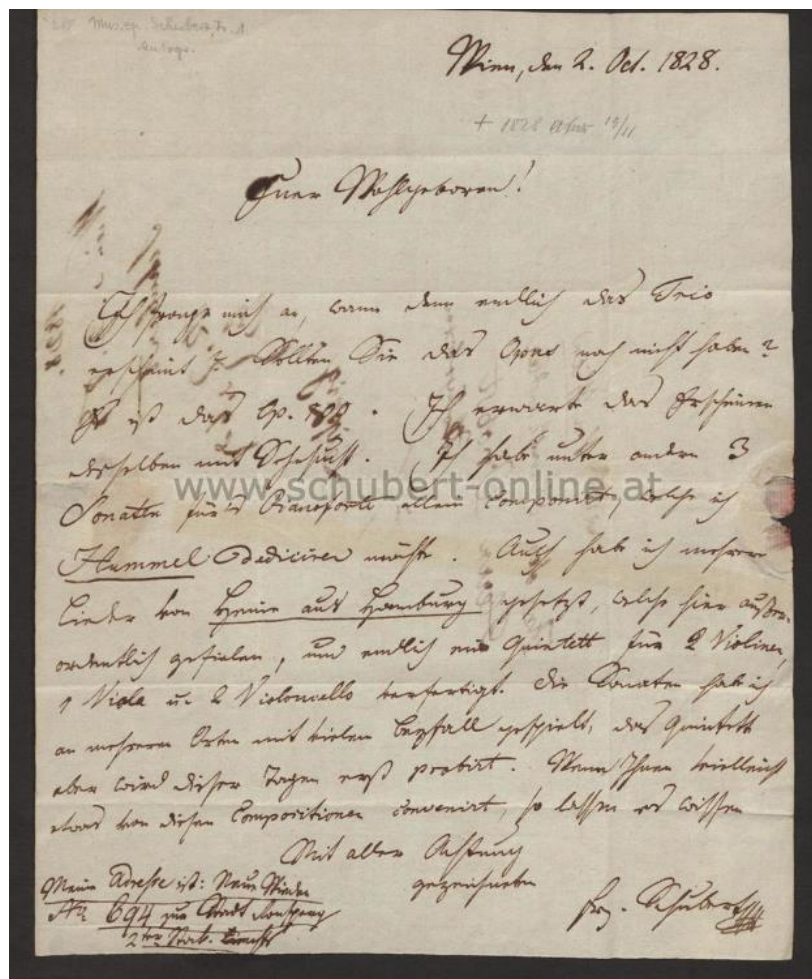 Mus. ep. Schubert, Fr. 1
Autogr.
Wien, den 2. Oct. 1828.
+ 1828 19/11
Euer Wohlgeboren!
Ich frage mich an, wann denn endlich das Trio
erscheint? Sollten Sie das Opus noch nicht haben?
Es ist das Op. 100. Ich erwarte das Erscheinen
desselben mit Sehnsucht. Ich habe unter andern 3
Sonaten für's Pianoforte allein componirt, welche ich
Hummel dediciren möchte. Auch habe ich mehrere
Lieder von Heine aus Hamburg gesetzt, welche hier außer-
ordentlich gefielen, und endlich ein Quintett für 2 Violinen,
1 Viola u. 2 Violoncello verfertigt. Die Sonaten habe ich
an mehreren Orten mit vielem Beyfall gespielt, das Quintett
aber wird dieser Tagen erst probirt. Wenn Ihnen vielleicht
etwas von diesen Compositionen convenirt, so lassen es wissen
Mit aller Achtung
gezeichneten
Frz. Schubert
Meine Adresse ist: Neue Wieden
No 694 zur Stadt Ronsperg
2ter Stock rechts
www.schubert-online.at